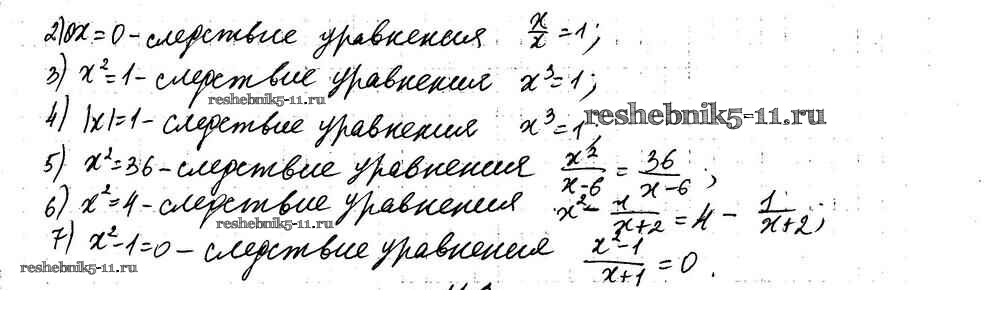 2) 0x = 0 - следствие уравнения x/x = 1;
3) x² = 1 - следствие уравнения x³ = 1;
reshebnik5-11.ru
reshebnik5-11.ru
4) |x| = 1 - следствие уравнения x³ = 1;
5) x² = 36 - следствие уравнения x²/(x-6) = 36/(x-6);
6) x² = 4 - следствие уравнения x² - 1/(x+2) = 4 - 1/(x+2);
reshebnik5-11.ru
7) x² - 1 = 0 - следствие уравнения (x²-1)/(x+1) = 0.
reshebnik5-11.ru